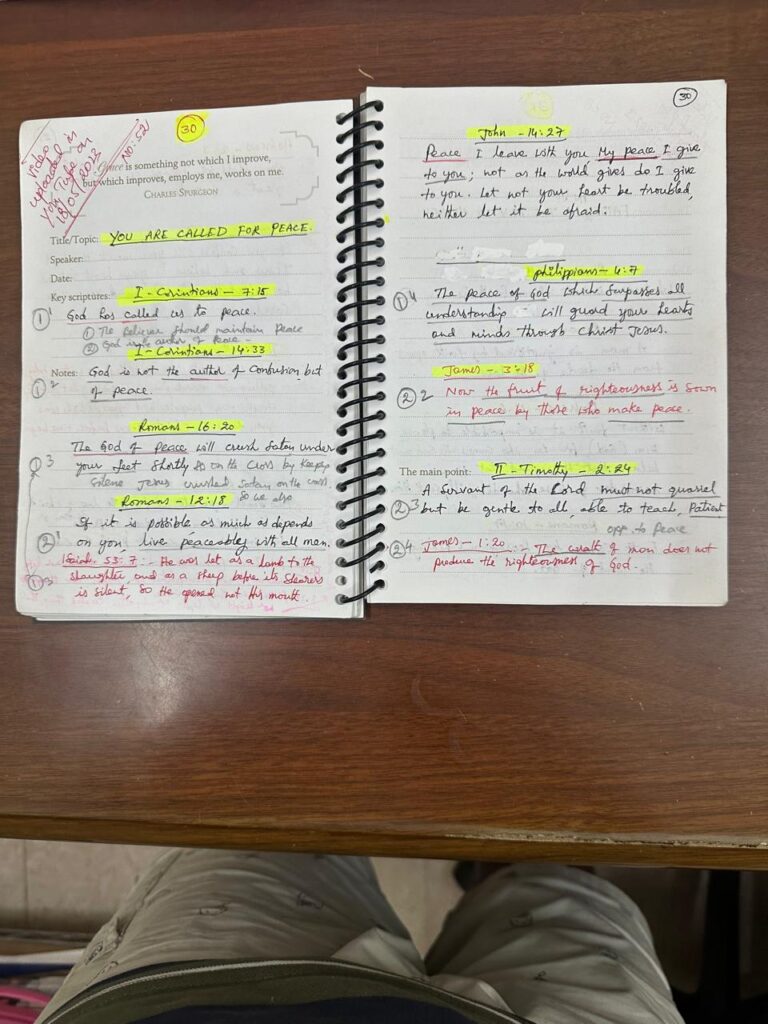 Video
uploaded in
You Tube on
18/07/2023
No: 52
30
Grace is something not which I improve,
but which improves, employs me, works on me.
CHARLES SPURGEON
Title/Topic: YOU ARE CALLED FOR PEACE.
Speaker:
Date:
Key scriptures: I - Corintians - 7:15
1 1 God has called us to peace.
① The believer should maintain Peace
② God is the author of Peace -
I - Corintians - 14:33
Notes: God is not the author of Confusion but
1 2 of peace.
Romans - 16:20
The God of peace will crush Satan under
1 3 your feet shortly So on the Cross by keeping
Silence Jesus crushed Satan on the cross
So we also
Romans - 12:18
If it is possible, as much as depends
2 1 on you, live peaceably with all men.
Isaiah 53:7:- He was let as a lamb to the
1 3 slaughter and as a sheep before its shearers
is silent, So He opened not His mouth.
30
John - 14:27
Peace I leave with you, My peace I give
to you; not as the world gives do I give
to you. Let not your heart be troubled,
neither let it be afraid.
philippians - 4:7
1 4 The peace of God which Surpasses all
understanding will guard your hearts
and minds through Christ Jesus.
James - 3:18
2 2 Now the fruit of righteousness is Sown
in peace by those who make peace.
The main point: II - Timothy - 2:24
A Servant of the Lord must not quarrel
2 3 but be gentle to all, able to teach, Patient
opp to Peace
2 4 James - 1:20 :- The wrath of man does not
produce the righteousness of God.